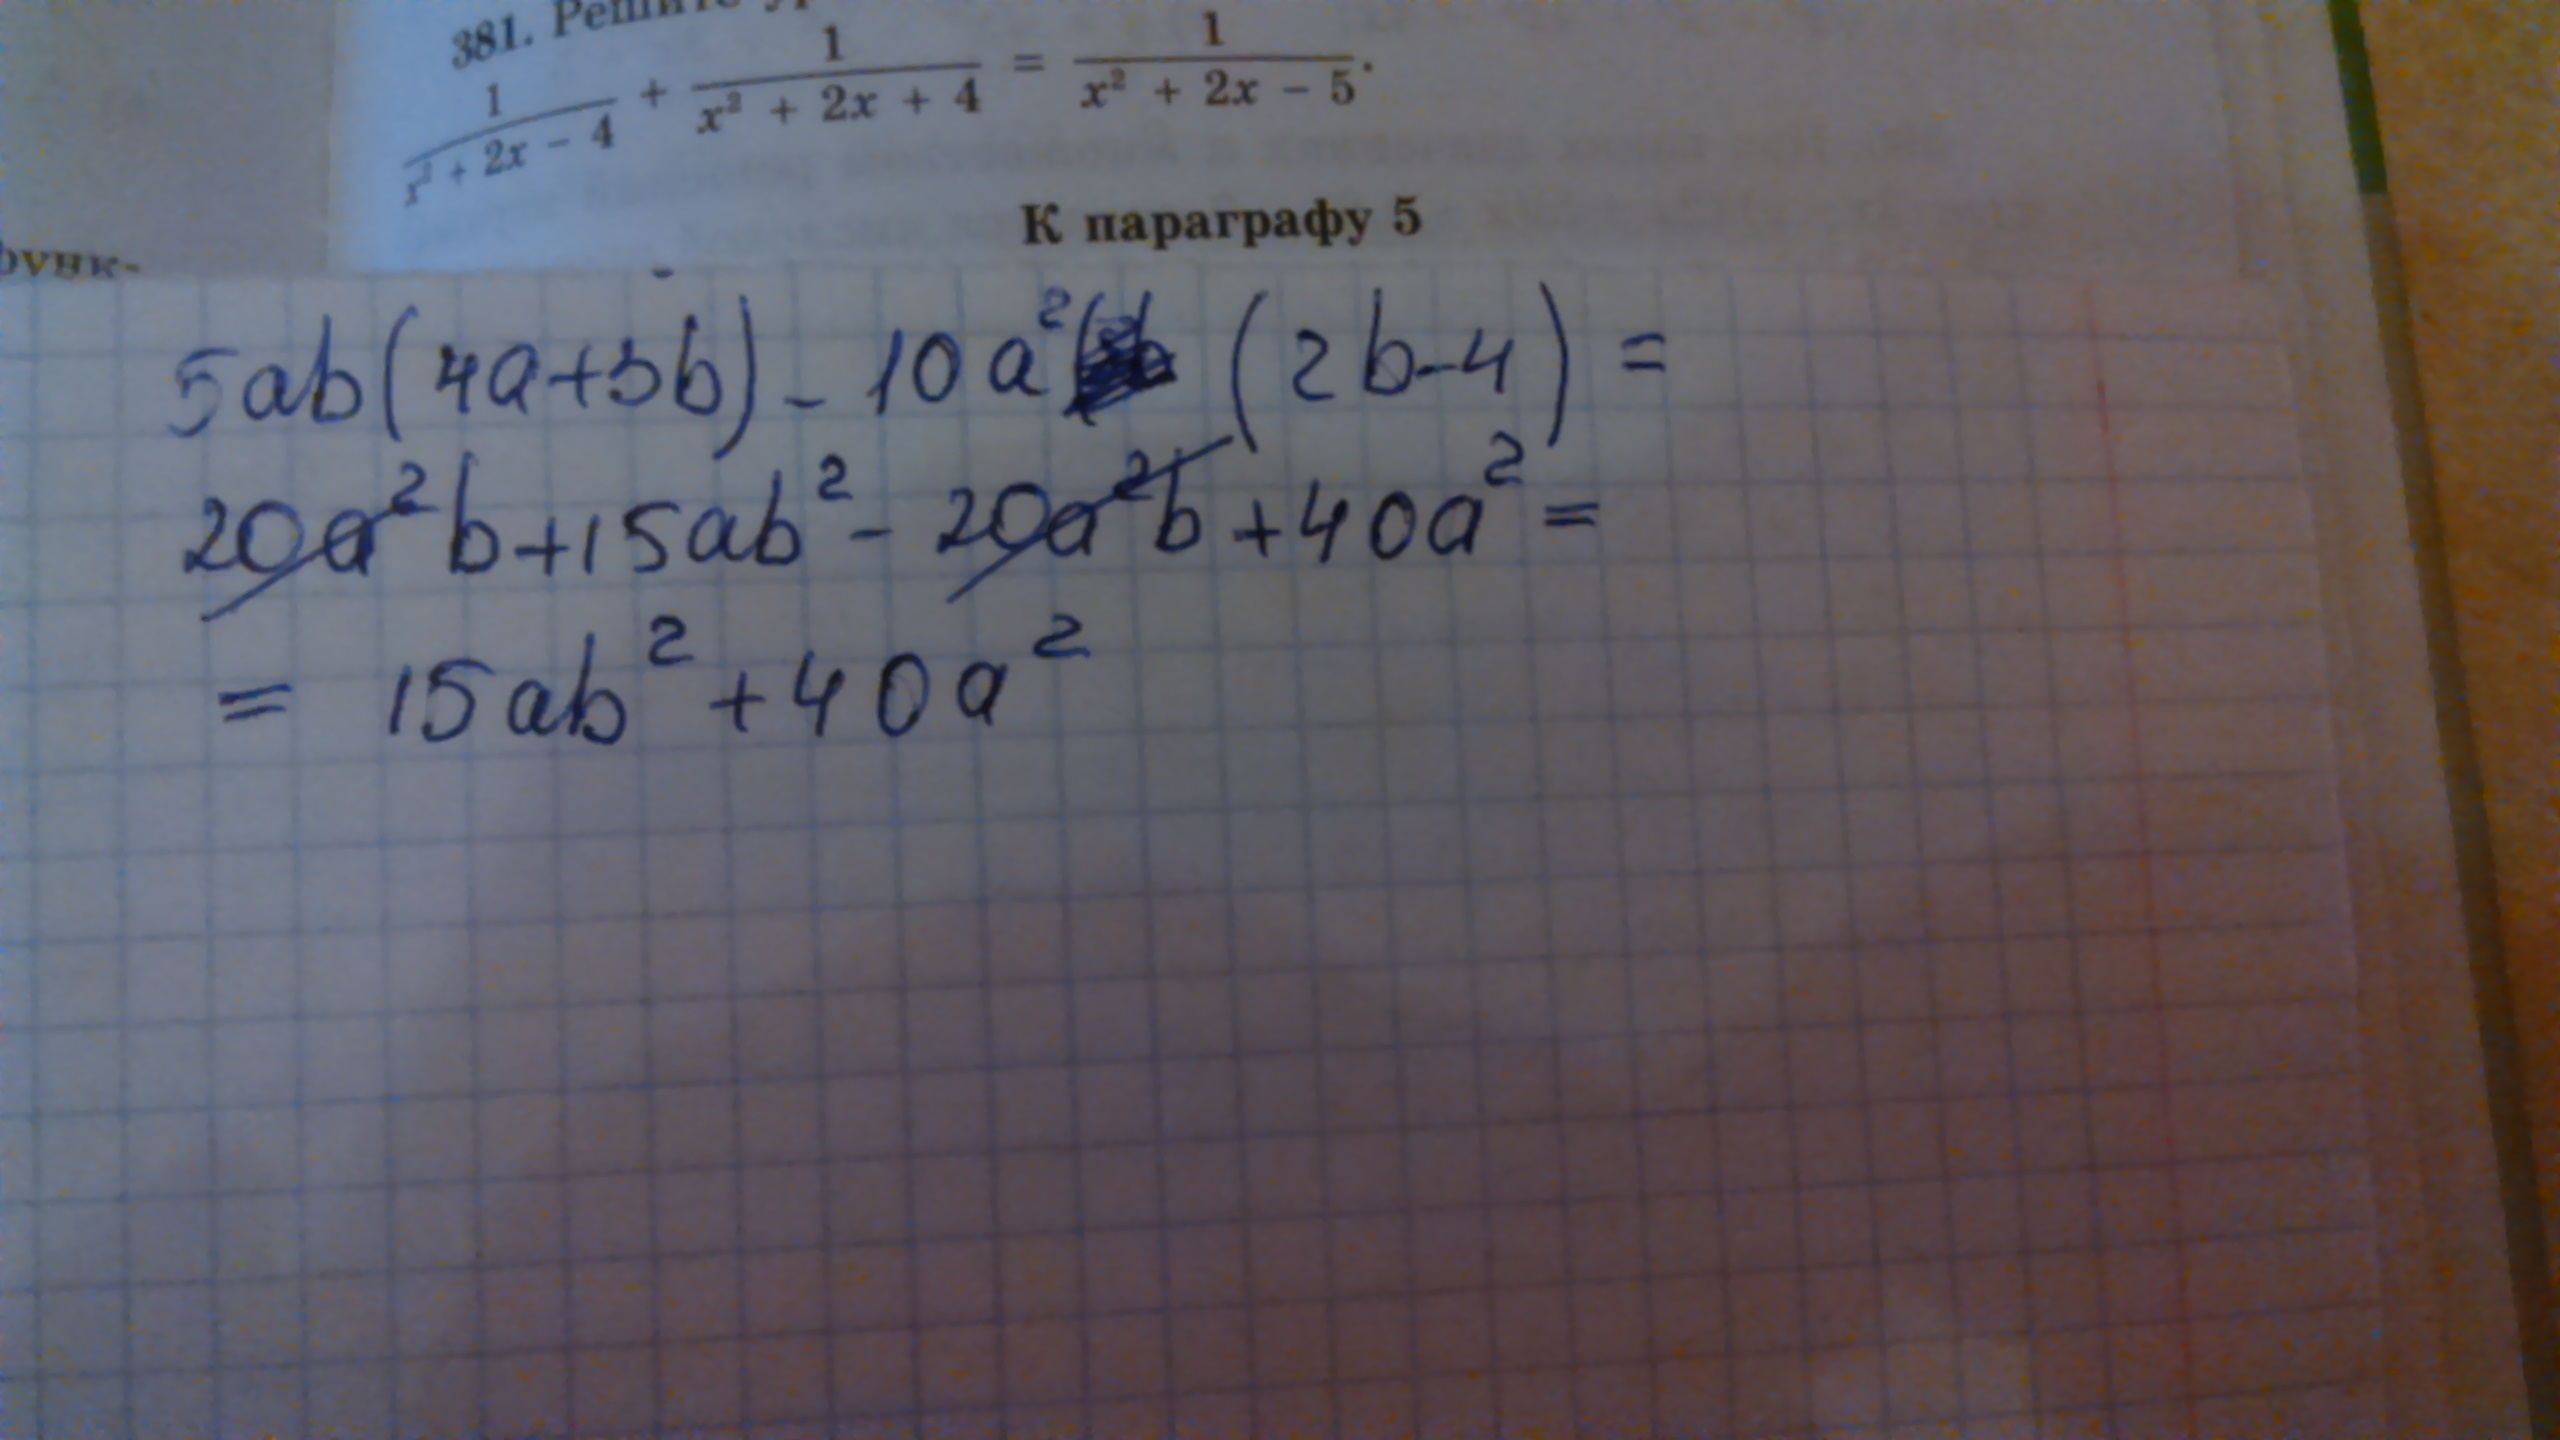 381. Решите
1/(x² + 2x − 4) + 1/(x² + 2x + 4) = 1/(x² + 2x − 5).
К параграфу 5
функ-
5ab(4a+3b) - 10a² (2b-4) =
20a²b+15ab² - 20a²b+40a² =
= 15ab² + 40a²